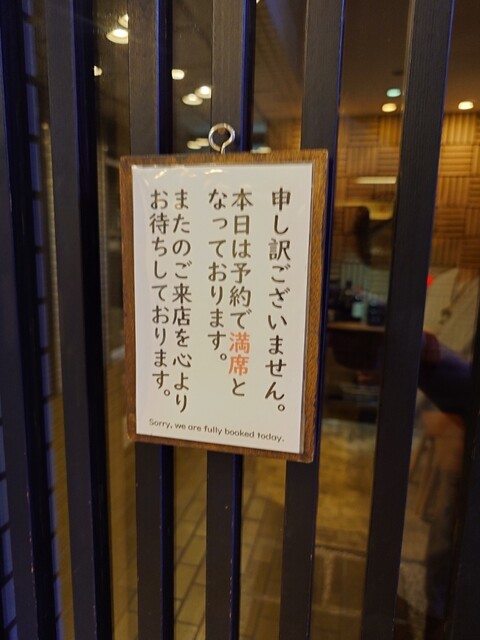 申し訳ございません。
本日は予約で満席と
なっております。
またのご来店を心より
お待ちしております。
Sorry, we are fully booked today.